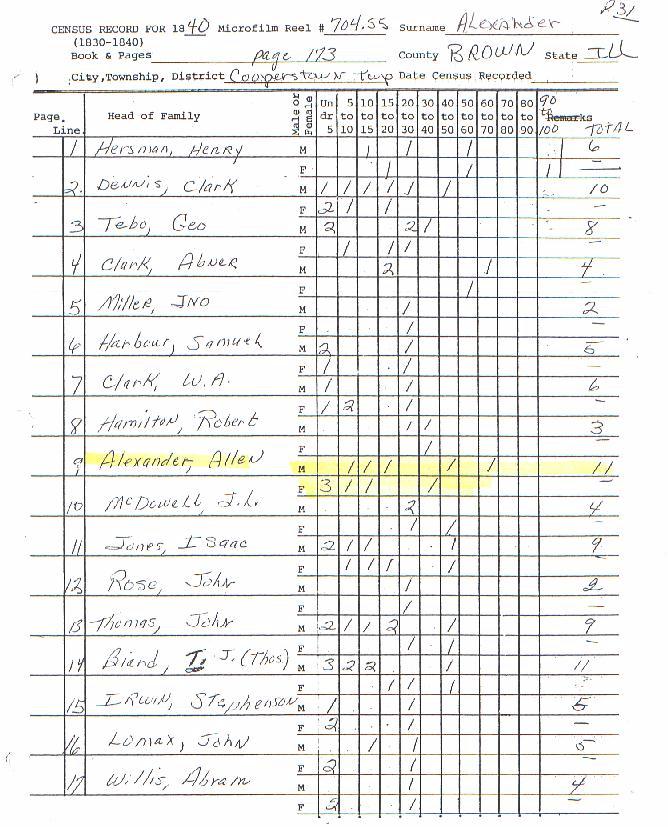 P31
CENSUS RECORD FOR 1840 Microfilm Reel # 704.55 Surname Alexander
(1830-1840)
Book & Pages page 173 County BROWN State Ill
City,Township, District Cooperstown Twp Date Census Recorded
Page. Line Head of Family Male or Female Un dr 5 5 to 10 10 to 15 15 to 20 20 to 30 30 to 40 40 to 50 50 to 60 60 to 70 70 to 80 80 to 90 90 to 100 Remarks TOTAL
1 Hersman, Henry M / / / / 6
F / / 1 —
2. Dennis, Clark M / / / / / / 10
F 2 / / —
3 Tebo, Geo M 2 2 / 8
F / / / —
4 Clark, Abner M 2 / 4
F / —
5 Miller, JNO M / 2
F / —
6 Harbour, Samuel M 2 / 5
F / / —
7 Clark, W.A. M / / 6
F / 2 / —
8 Hamilton, Robert M / / 3
F / —
9 Alexander, Allen M / / / / / 11
F 3 / / / —
10 McDowell, J.L. M 2 4
F / / —
11 Jones, Isaac M 2 / / / 9
F / / / / —
12 Rose, John M / 2
F / —
13 Thomas, John M 2 / / 2 / 9
F / / —
14 Biard, T. J. (Thos) M 3 2 2 / 11
F / / / —
15 IRWIN, Stephenson M / / 5
F 2 / —
16 Lomax, John M / / 5
F 2 / —
17 Willis, Abram M / 4
F 2 / —